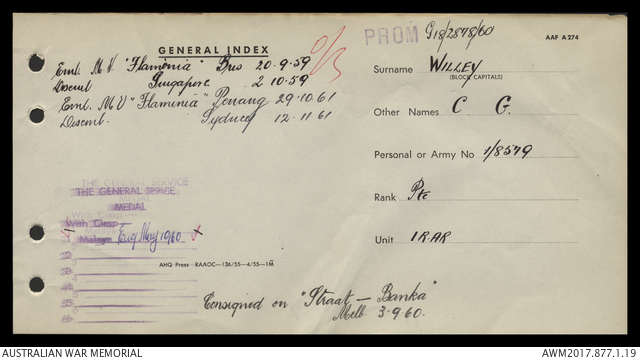 GENERAL INDEX
Emb. M.V "Flaminia" Bris 20-9-59
Disemb Singapore 2 10.59
Emb. M.V "Flaminia" Penang 29.10.61
Disemb. Sydney 12-11 61
PROM G18/2878/60
AAF A 274
Surname WILLEY
(BLOCK CAPITALS)
Other Names C G.
Personal or Army No 1/8579
Rank Pte
Unit 1 RAR
THE GENERAL SERVICE
MEDAL
With Clasp
Malaya Enq May 1960 x
AHQ Press RAAOC—136/55—4/55—1M
Consigned on "Straat — Banka"
Melb. 3-9.60.
AUSTRALIAN WAR MEMORIAL
AWM2017.877.1.19